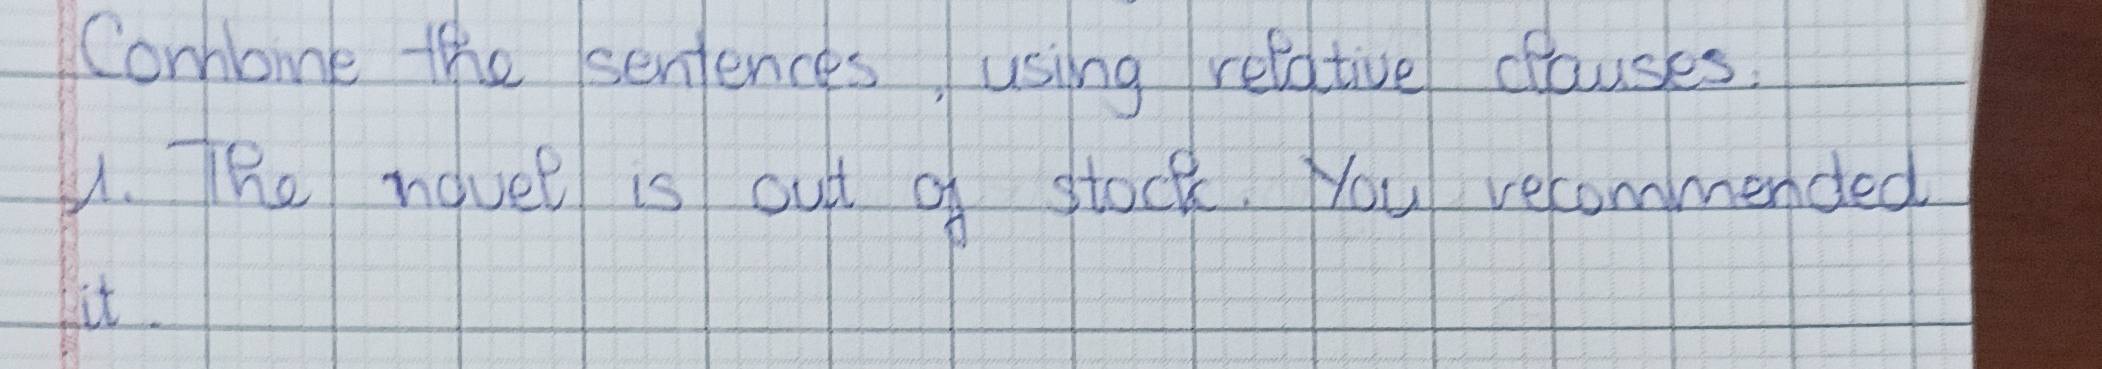 Combine the sentences, using relative clauses.
1. The novel is out of stock. You recommended
it.